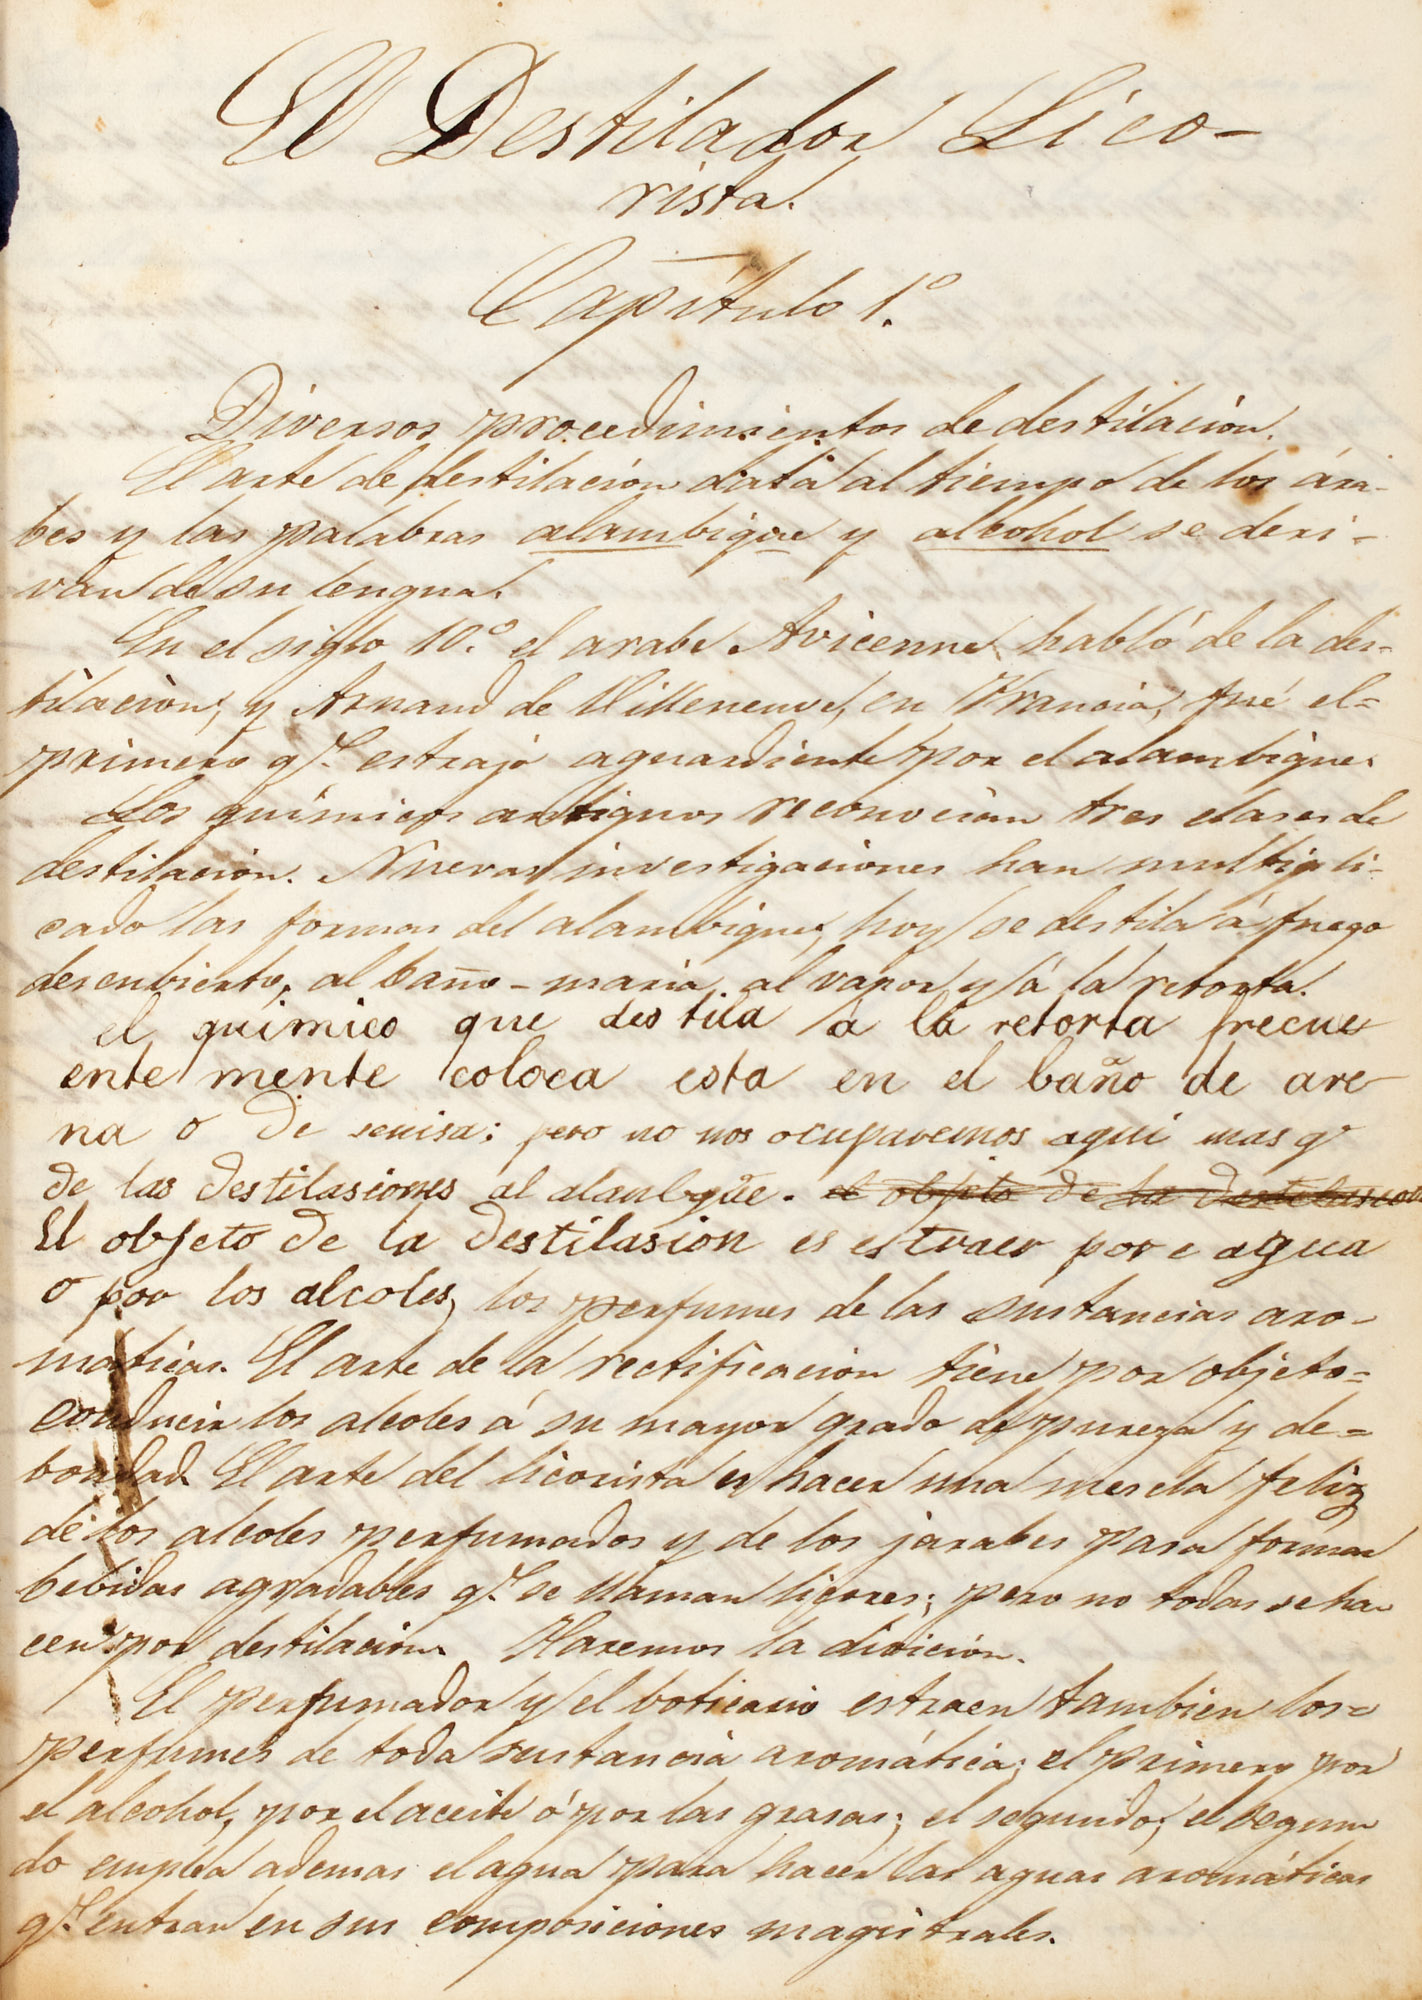 El Destilador Lico-
rista.
Capítulo 1.º
Diversos procedimientos de destilación.
El arte de destilación data al tiempo de los ára-
bes y las palabras alambique y alcohol se deri-
van de su lengua.
En el siglo 10.º el arabe Avicenne habló de la des-
tilación; y Arnaud de Villeneuve, en Francia, fué el-
primero q.e estrajó aguardiente por el alambique.
Los químicos antiguos reconocian tres clases de
destilación. Nuevas investigaciones han multipli-
cado las formas del alambique, hoy se destila á fuego
descubierto, al baño-maria, al vapor y á la retorta.
el quimico que destila a la retorta frecue
ente mente coloca esta en el baño de are
na o de senisa: pero no nos ocuparemos aqui mas q
de las destilasiones al alanbqûe. el objeto de la destilasion
El objeto de la destilasion es estraer por e agua
o por los alcoles, los perfumes de las sustancias aro-
maticas. El arte de la rectificacion tiene por objeto-
conducir los alcoles á su mayor grado de pureza y de-
bondad. El arte del licorista es hacer una mescla feliz
de los alcoles perfumados y de los jarabes para formar
bebidas agradables q.e se llaman licores; pero no todas se ha
cen por destilación. Haremos la divición.
El perfumador y el boticario estraen tambien los-
perfumes de toda sustancia aromática; el primero por
el alcohol, por el aceite ó por las grasas; el segundo; el segun
do emplea ademas el agua para hacer las aguas aromáticas
q.e entran en sus composiciones magistrales.